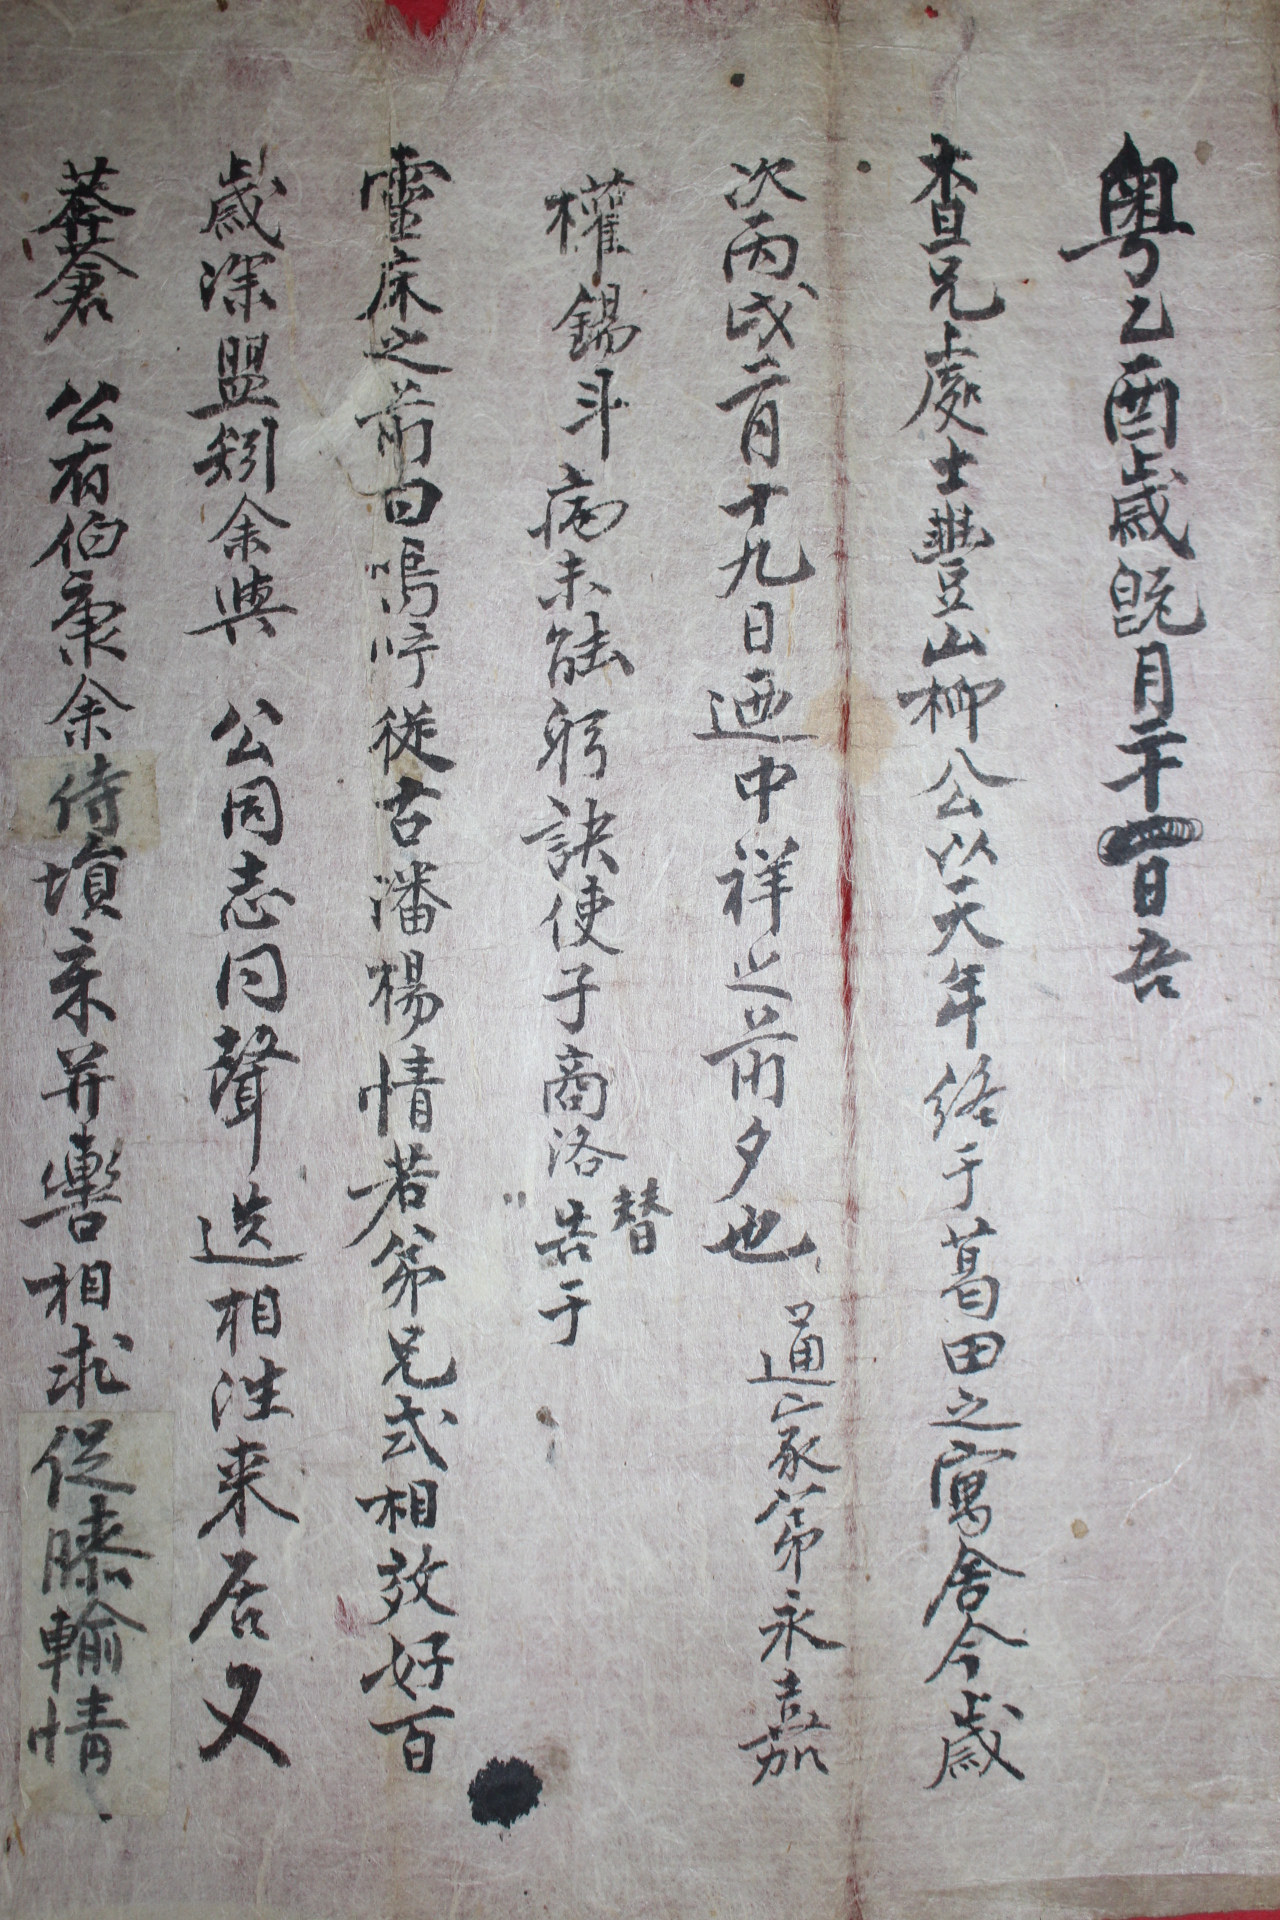 粤乙酉歲旣月二十四日吾
査兄處士豐山柳公以天年終于葛田之寓舍今歲
次丙戌二月十九日迺中祥之前夕也通家弟永嘉
權錫斗病未能躬訣使子商洛替告于
靈床之前曰嗚呼從古潘楊情若弟兄式相效好百
歲深盟矧余與 公同志同聲迭相往來居又
莽蒼 公有伯康余侍塤亲并轡相求促膝輸情